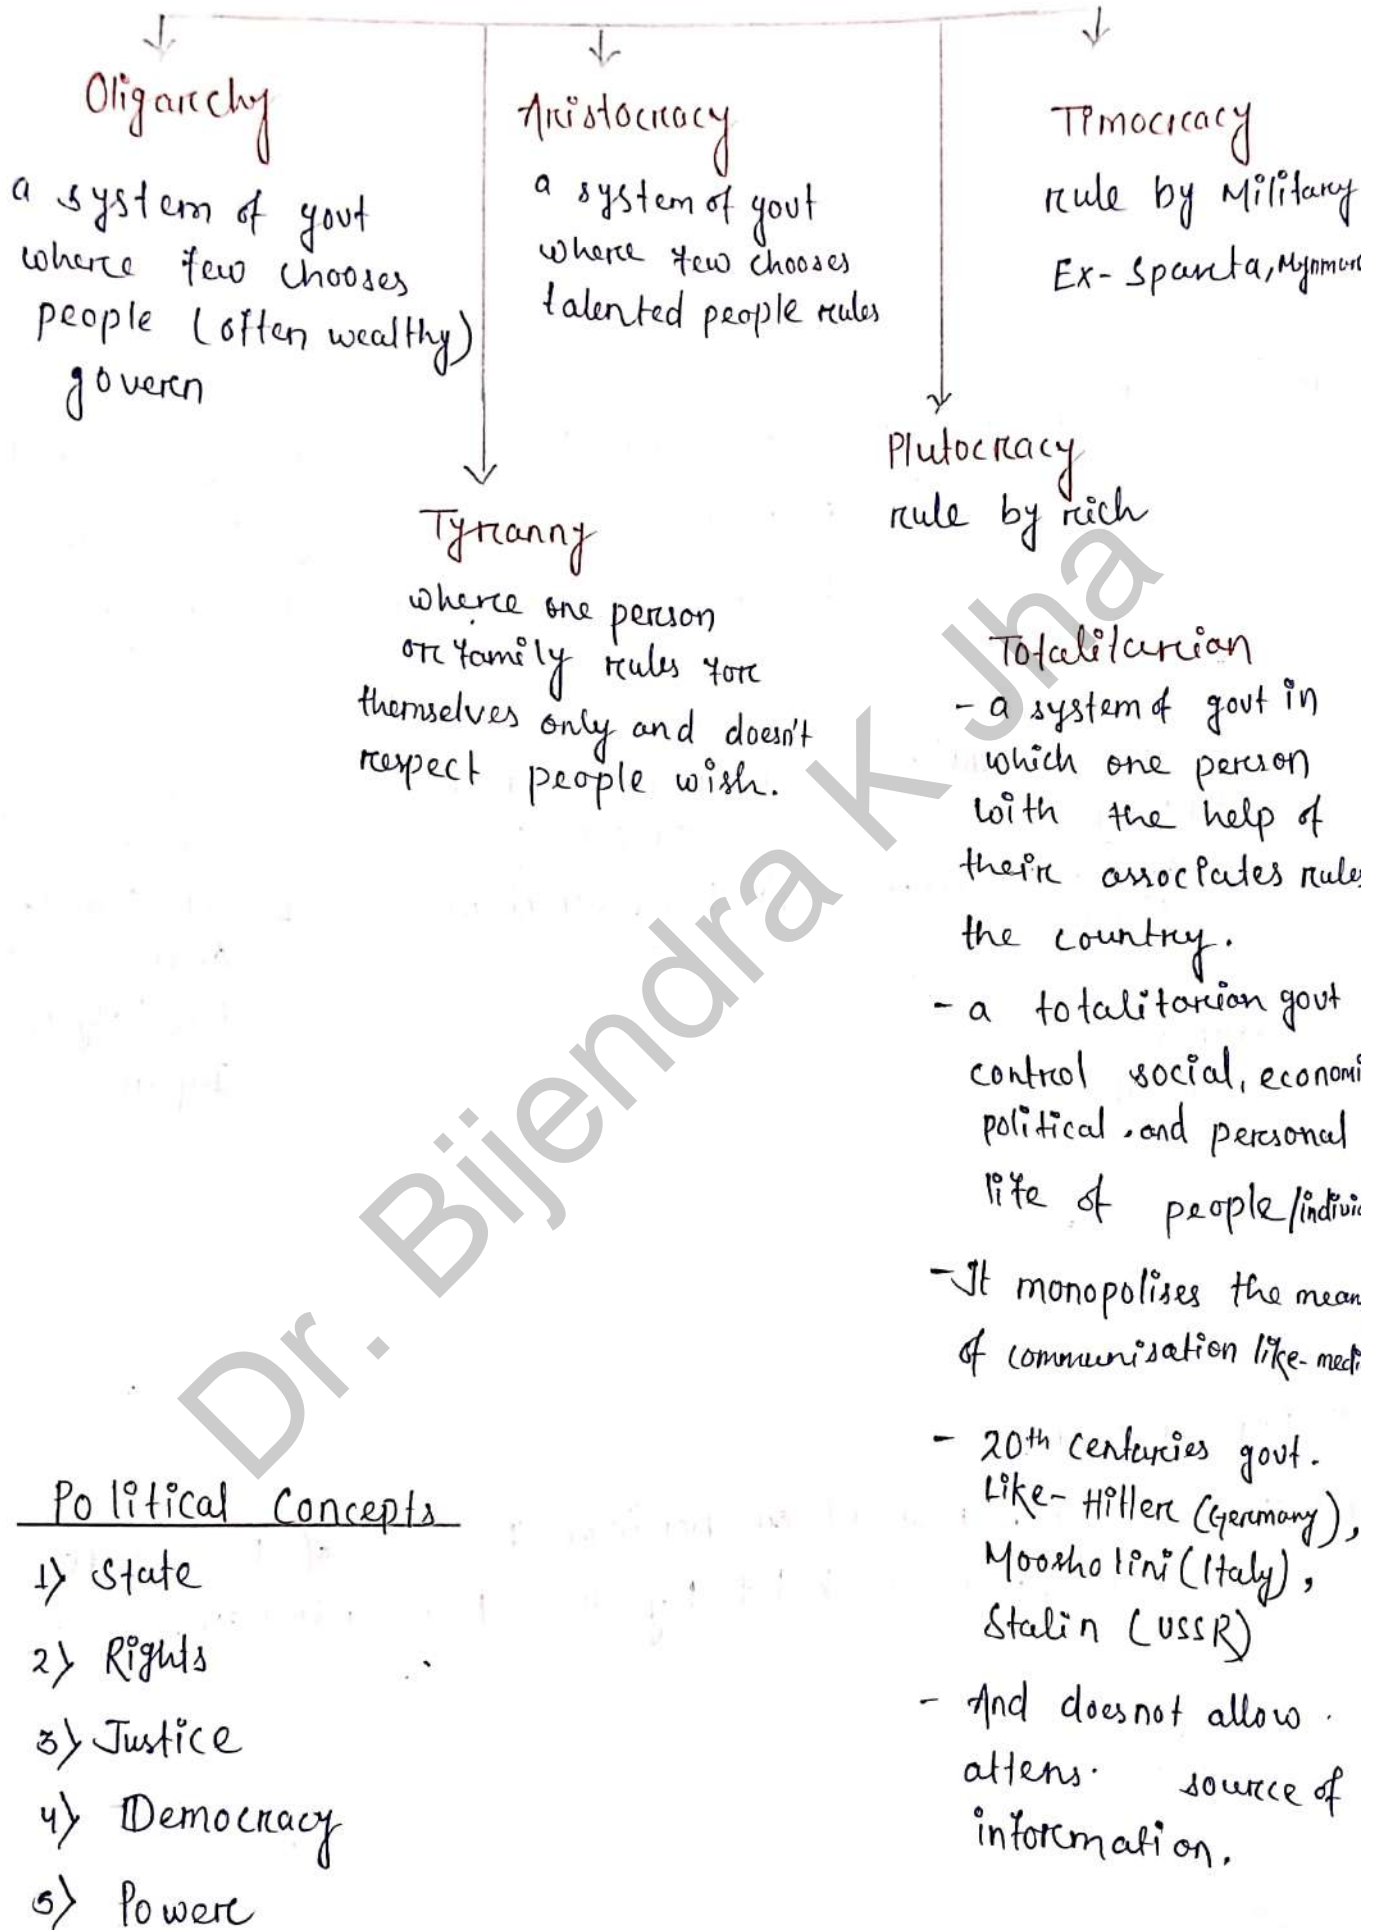 Oligarchy
a system of govt
where few chooses
people (often wealthy)
govern
Aristocracy
a system of govt
where few chooses
talented people rules
Timocracy
rule by Military
Ex- Sparta,
Tyranny
where one person
or family rules for
themselves only and doesn't
respect people wish.
Plutocracy
rule by rich
Totalitarian
- a system of govt in
which one person
with the help of
their associates rules
the country.
- a totalitarian govt
control social, economi
political and personal
life of people/indivi
- It monopolises the mean
of communisation like- medi
- 20th centuries govt.
Like- Hitler (Germany),
Moosholini (Italy),
Stalin (USSR)
- And doesnot allow
source of
information.
Political Concepts
1) State
2) Rights
3) Justice
4) Democracy
5) Power
Dr. Bijendra K Jha